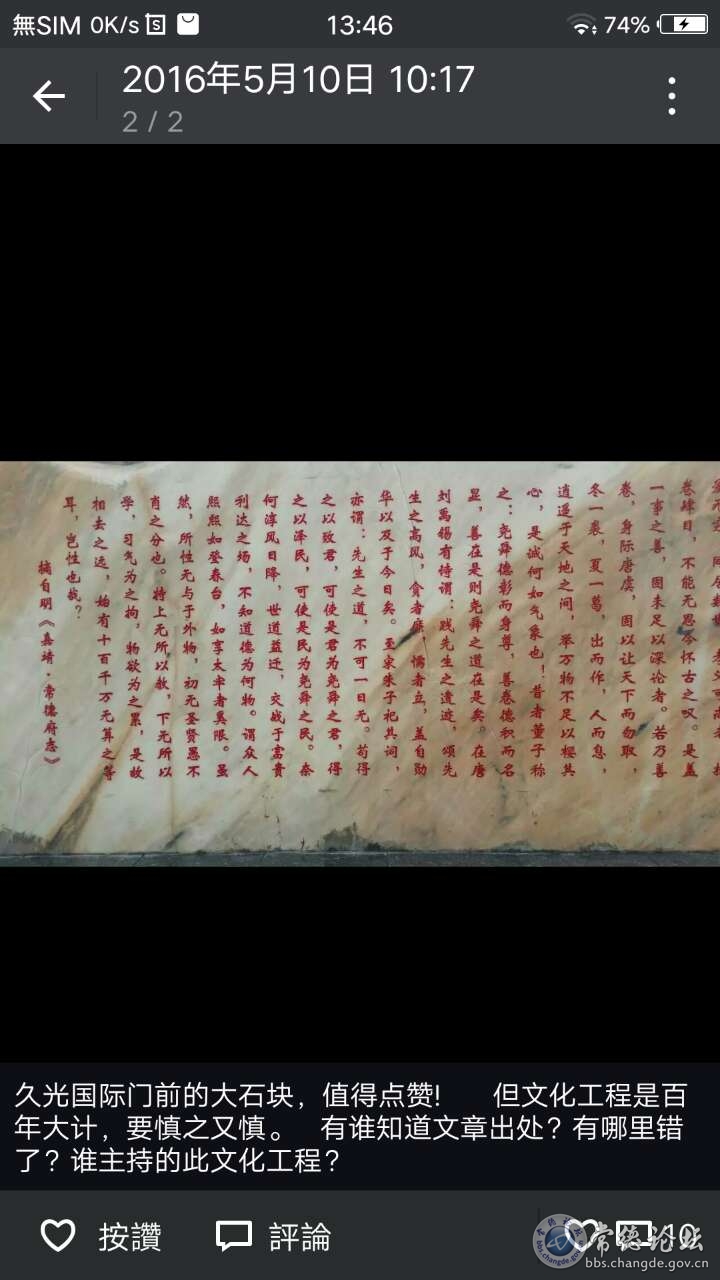 無SIM 0K/s 13:46 74%
2016年5月10日 10:17
2 / 2
卷肆目，不能无思今怀古之叹。是盖
一事之善，固未足以深论者。若乃善
卷，身际唐虞，固以让天下而勿取，
冬一裘，夏一葛，出而作，人而息，
逍遥于天地之间，举万物不足以樱其
心，是诚何如气象也！昔者董子称
之：尧舜德彰而身尊，善卷德积而名
显，善在是则尧舜之道在是矣。在唐
刘禹锡有待谓：践先生之遗迹，颂先
生之高风，贪者廉，懦者立，盖自勋
华以及于今日矣。至宋朱子祀其词，
亦谓：先生之道，不可一日无。苟得
之以致君，可使是君为尧舜之君，得
之以泽民，可使是民为尧舜之民。奈
何淳风日降，世道益迁，交战于富贵
利达之场，不知道德为何物。谓众人
熙熙如登春台，如享太牢者奚限。虽
然，所性无与于外物，初无圣贤愚不
肖之分也。特上无所以教，下无所以
学，习气为之拘，物欲为之累，是故
相去之远，始有十百千万无算之等
耳，岂性也哉？
摘自明《嘉靖·常德府志》
久光国际门前的大石块，值得点赞!　但文化工程是百
年大计，要慎之又慎。　有谁知道文章出处？有哪里错
了？谁主持的此文化工程？
按讚 評論 10
常德论坛
bbs.changde.gov.cn